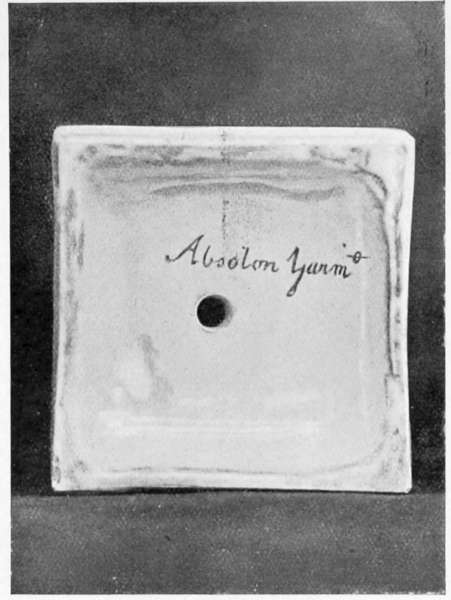 Absolon Yarmᵒ